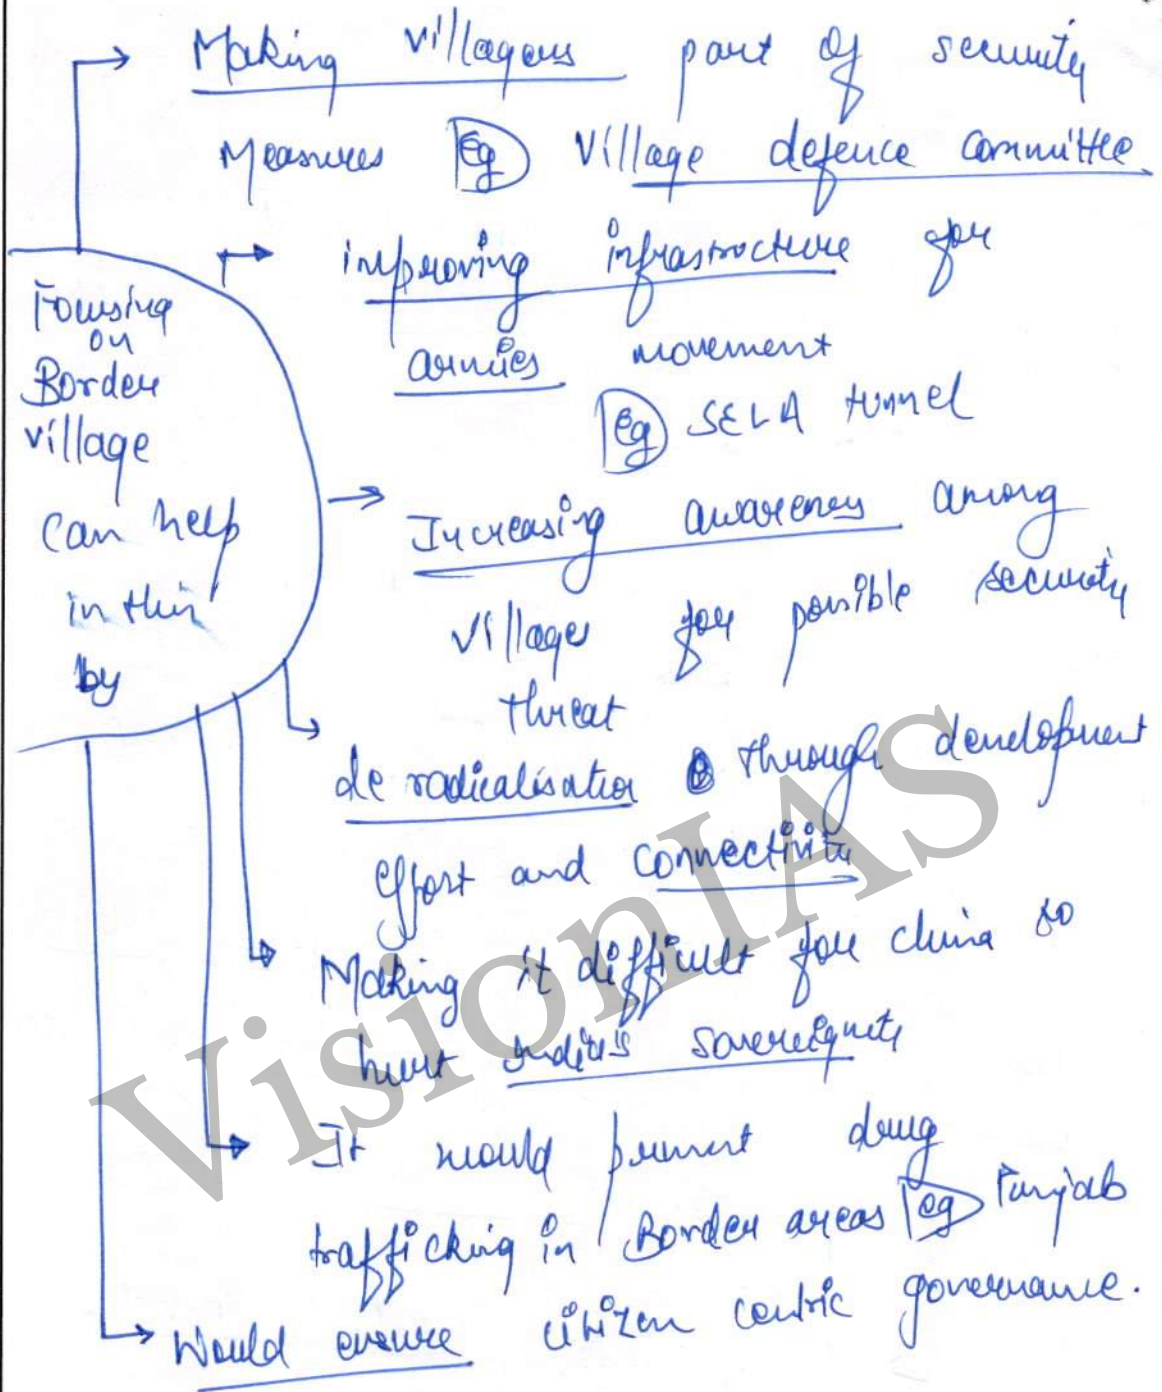 Making villagers part of security
Measures Eg Village defence Committee
improving infrastructure for
armies movement
Eg SELA tunnel
Focusing
on
Border
village
can help
in this
by
Increasing awareness among
villages for possible security
threat
de radicalisation through development
effort and connectivity
Making it difficult for china to
hurt India's sovereignty
It would prevent drug
trafficking in Border areas eg Punjab
Would ensure citizen centric governance.
VisionIAS